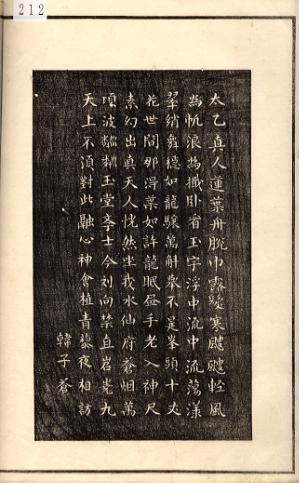 212
太乙真人蓮葉舟脫巾露髮寒颼颼輕風
為帆浪為檝卧看玉宇浮中流中流蕩漾
翠綃舞穩如龍驤萬斛舉不是峯頭十丈
花世間那得葉如許龍眠畫手老入神尺
素幻出真天人恍然坐我水仙府蒼烟萬
頃波粼粼玉堂斈士今刘向禁直岧嶤九
天上不須對此融心神會植青藜夜相訪
韓子蒼